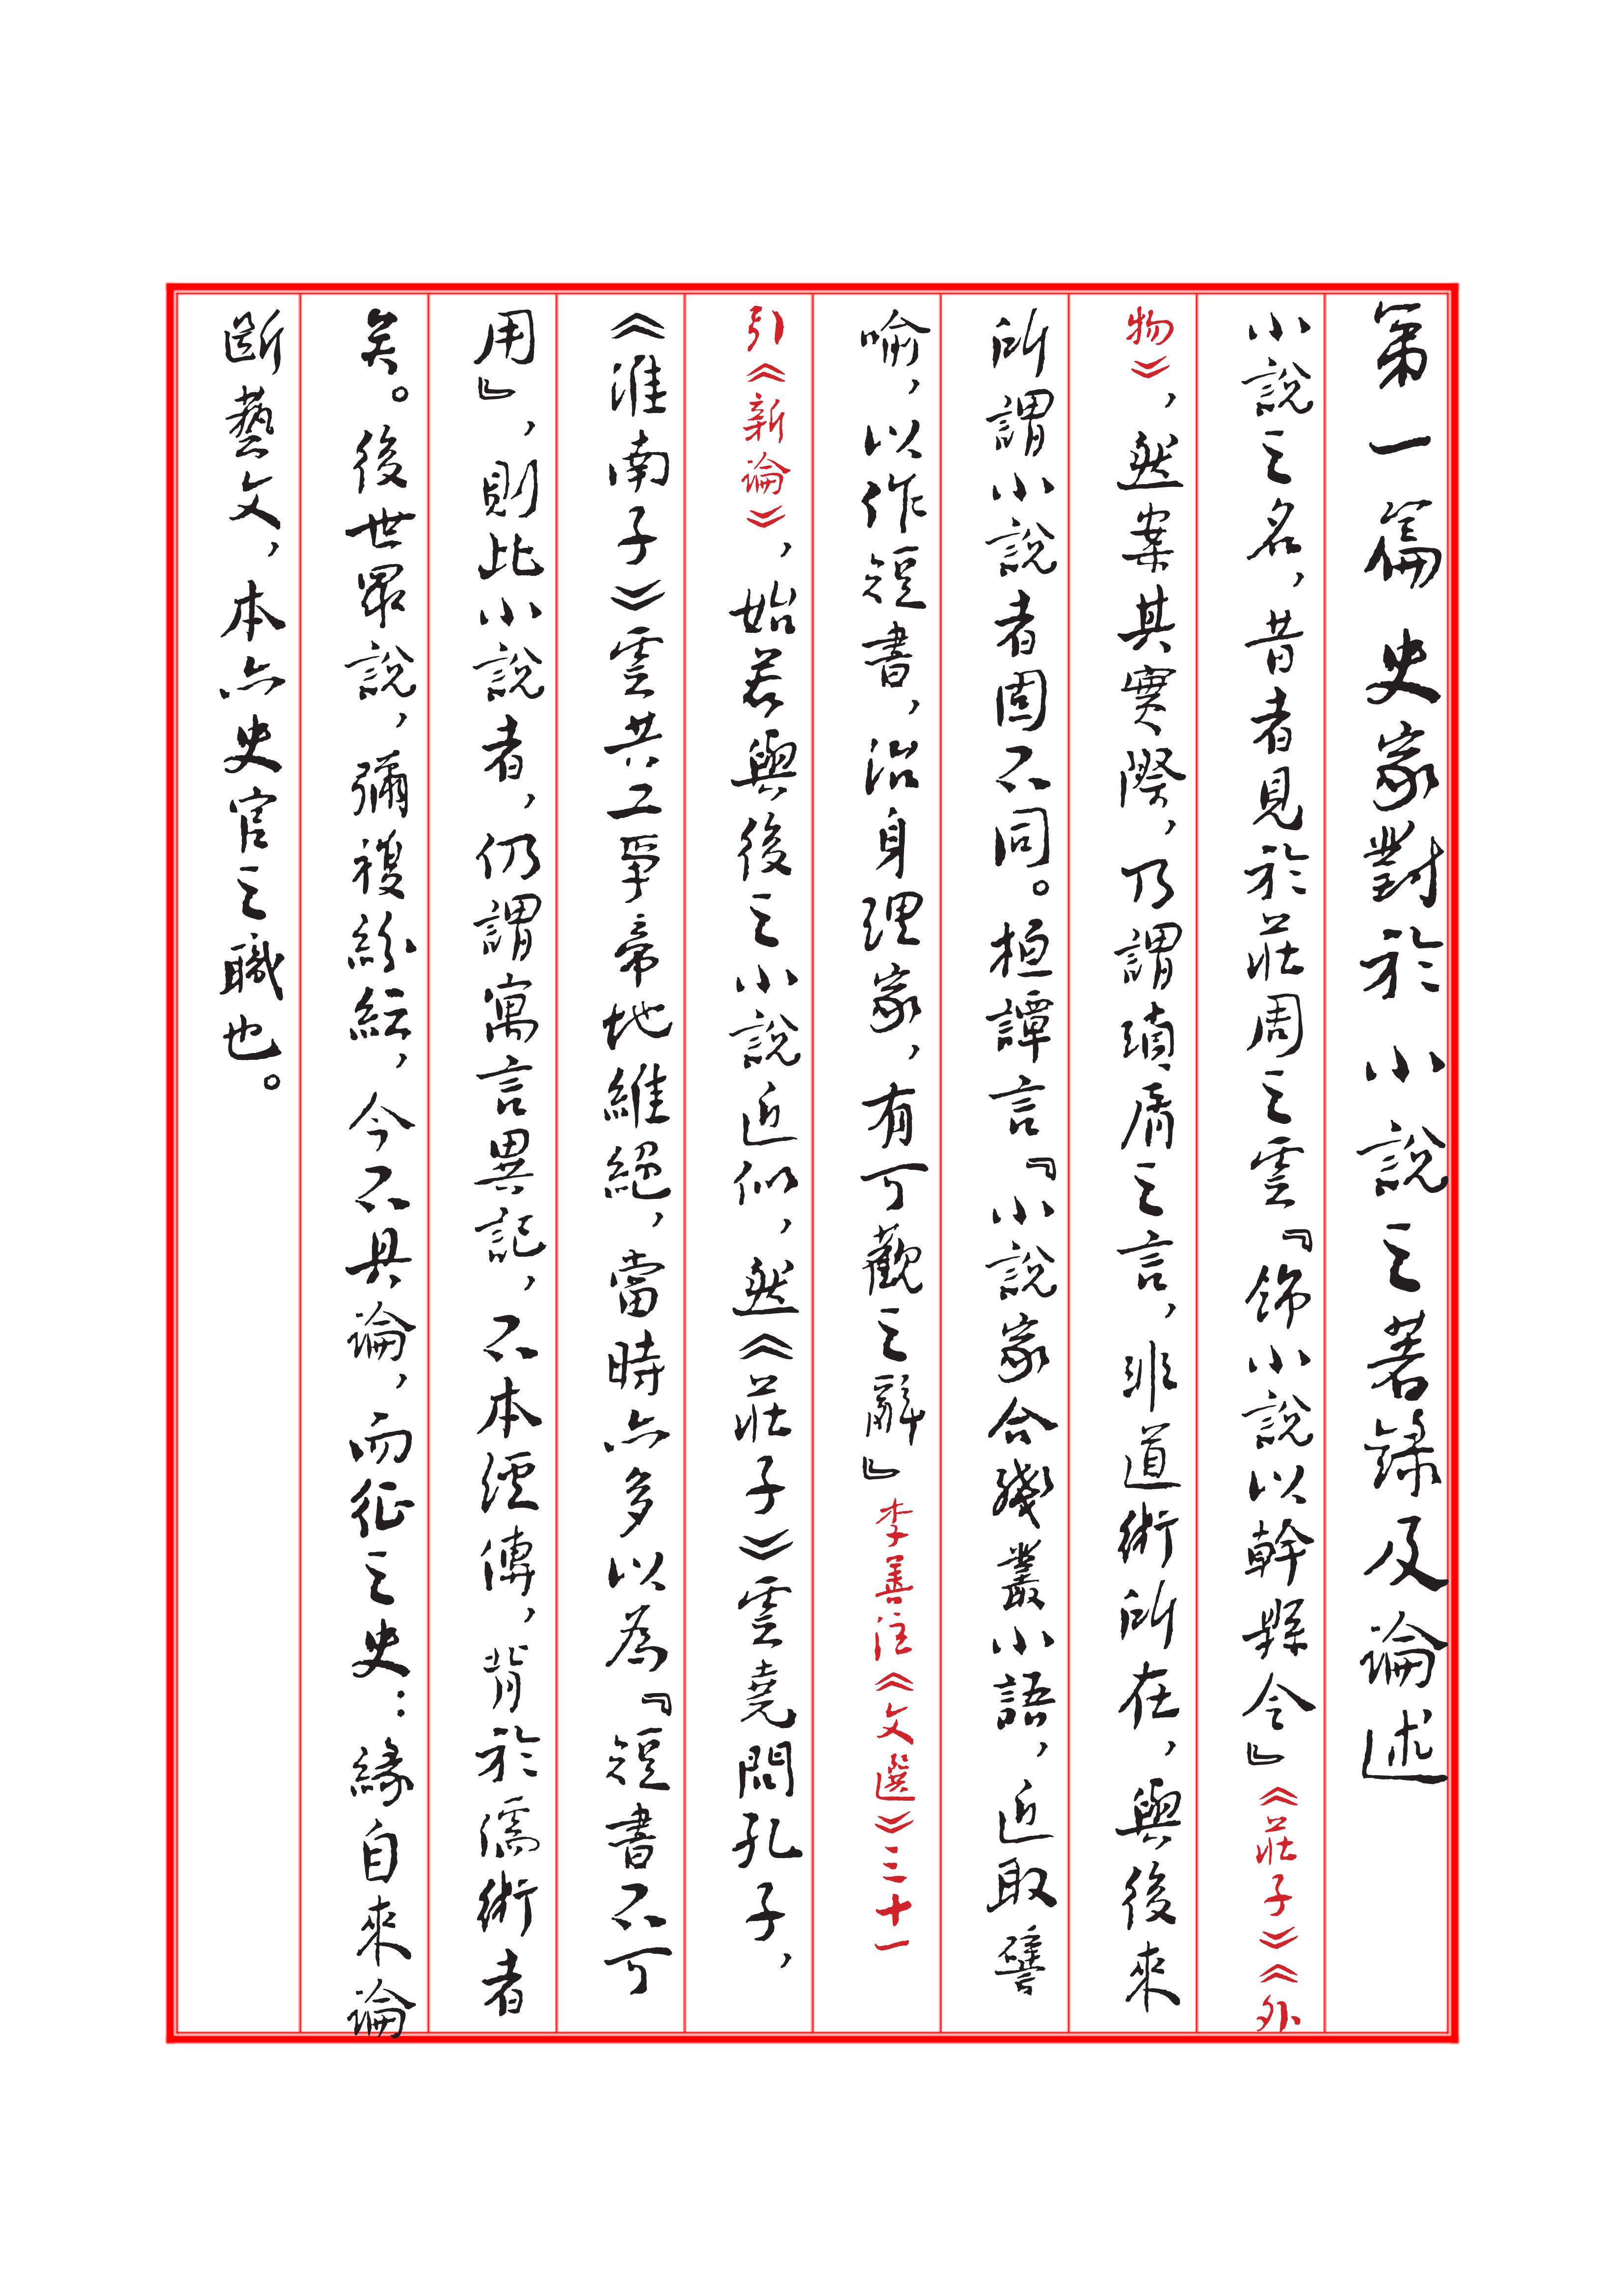 第一篇 史家對於小說之著錄及論述
小說之名，昔者見於莊周之雲『飾小說以幹縣令』《莊子》《外
物》，然案其實際，乃謂瑣屑之言，非道術所在，與後來
所謂小說者固不同。桓譚言『小說家合殘叢小語，近取譬
喻，以作短書，治身理家，有可觀之辭』李善注《文選》三十一
引《新論》，始若與後之小說近似，然《莊子》雲堯問孔子，
《淮南子》雲共工爭帝地維絕，當時亦多以為『短書不可
用』，則此小說者，仍謂寓言異記，不本經傳，背於儒術者
矣。後世眾說，彌複紛紜，今不具論，而征之史：緣自來論
斷藝文，本亦史官之職也。